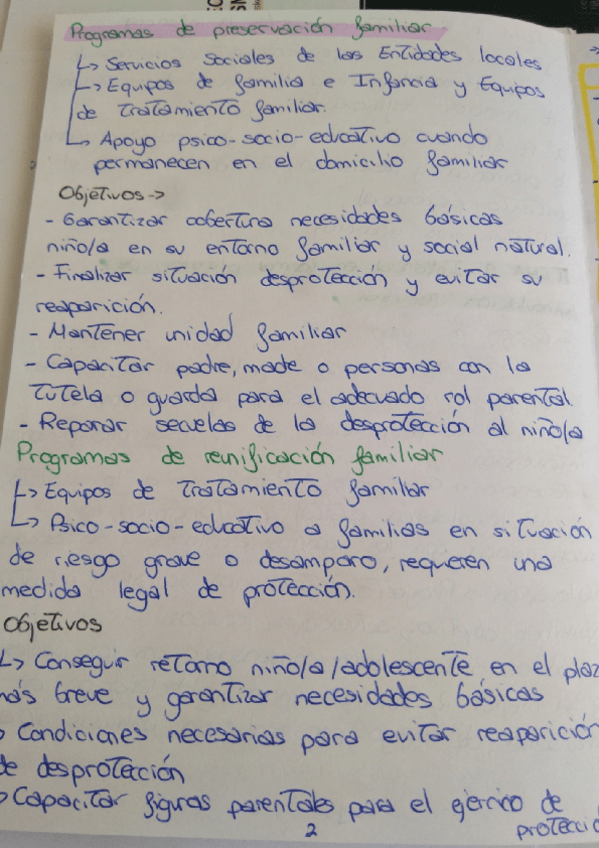 Programas de preservación familiar
↳ Servicios Sociales de las Entidades locales
↳ Equipos de familia e Infancia y Equipos
de Tratamiento familiar.
↳ Apoyo psico-socio-educativo cuando
permanecen en el domicilio familiar
Objetivos →
- Garantizar cobertura necesidades básicas
niño/a en su entorno familiar y social natural.
- Finalizar situación desprotección y evitar su
reaparición.
- Mantener unidad familiar
- Capacitar padre, madre o personas con la
tutela o guarda para el adecuado rol parental.
- Reparar secuelas de la desprotección al niño/a
Programas de reunificación familiar
↳ Equipos de Tratamiento familiar
↳ Psico-socio-educativo a familias en situación
de riesgo grave o desamparo, requieren una
medida legal de protección.
Objetivos
↳ Conseguir retorno niño/a/adolescente en el plaz
más breve y garantizar necesidades básicas
Condiciones necesarias para evitar reaparición
de desprotección
Capacitar figuras parentales para el ejercico de
protecció
2